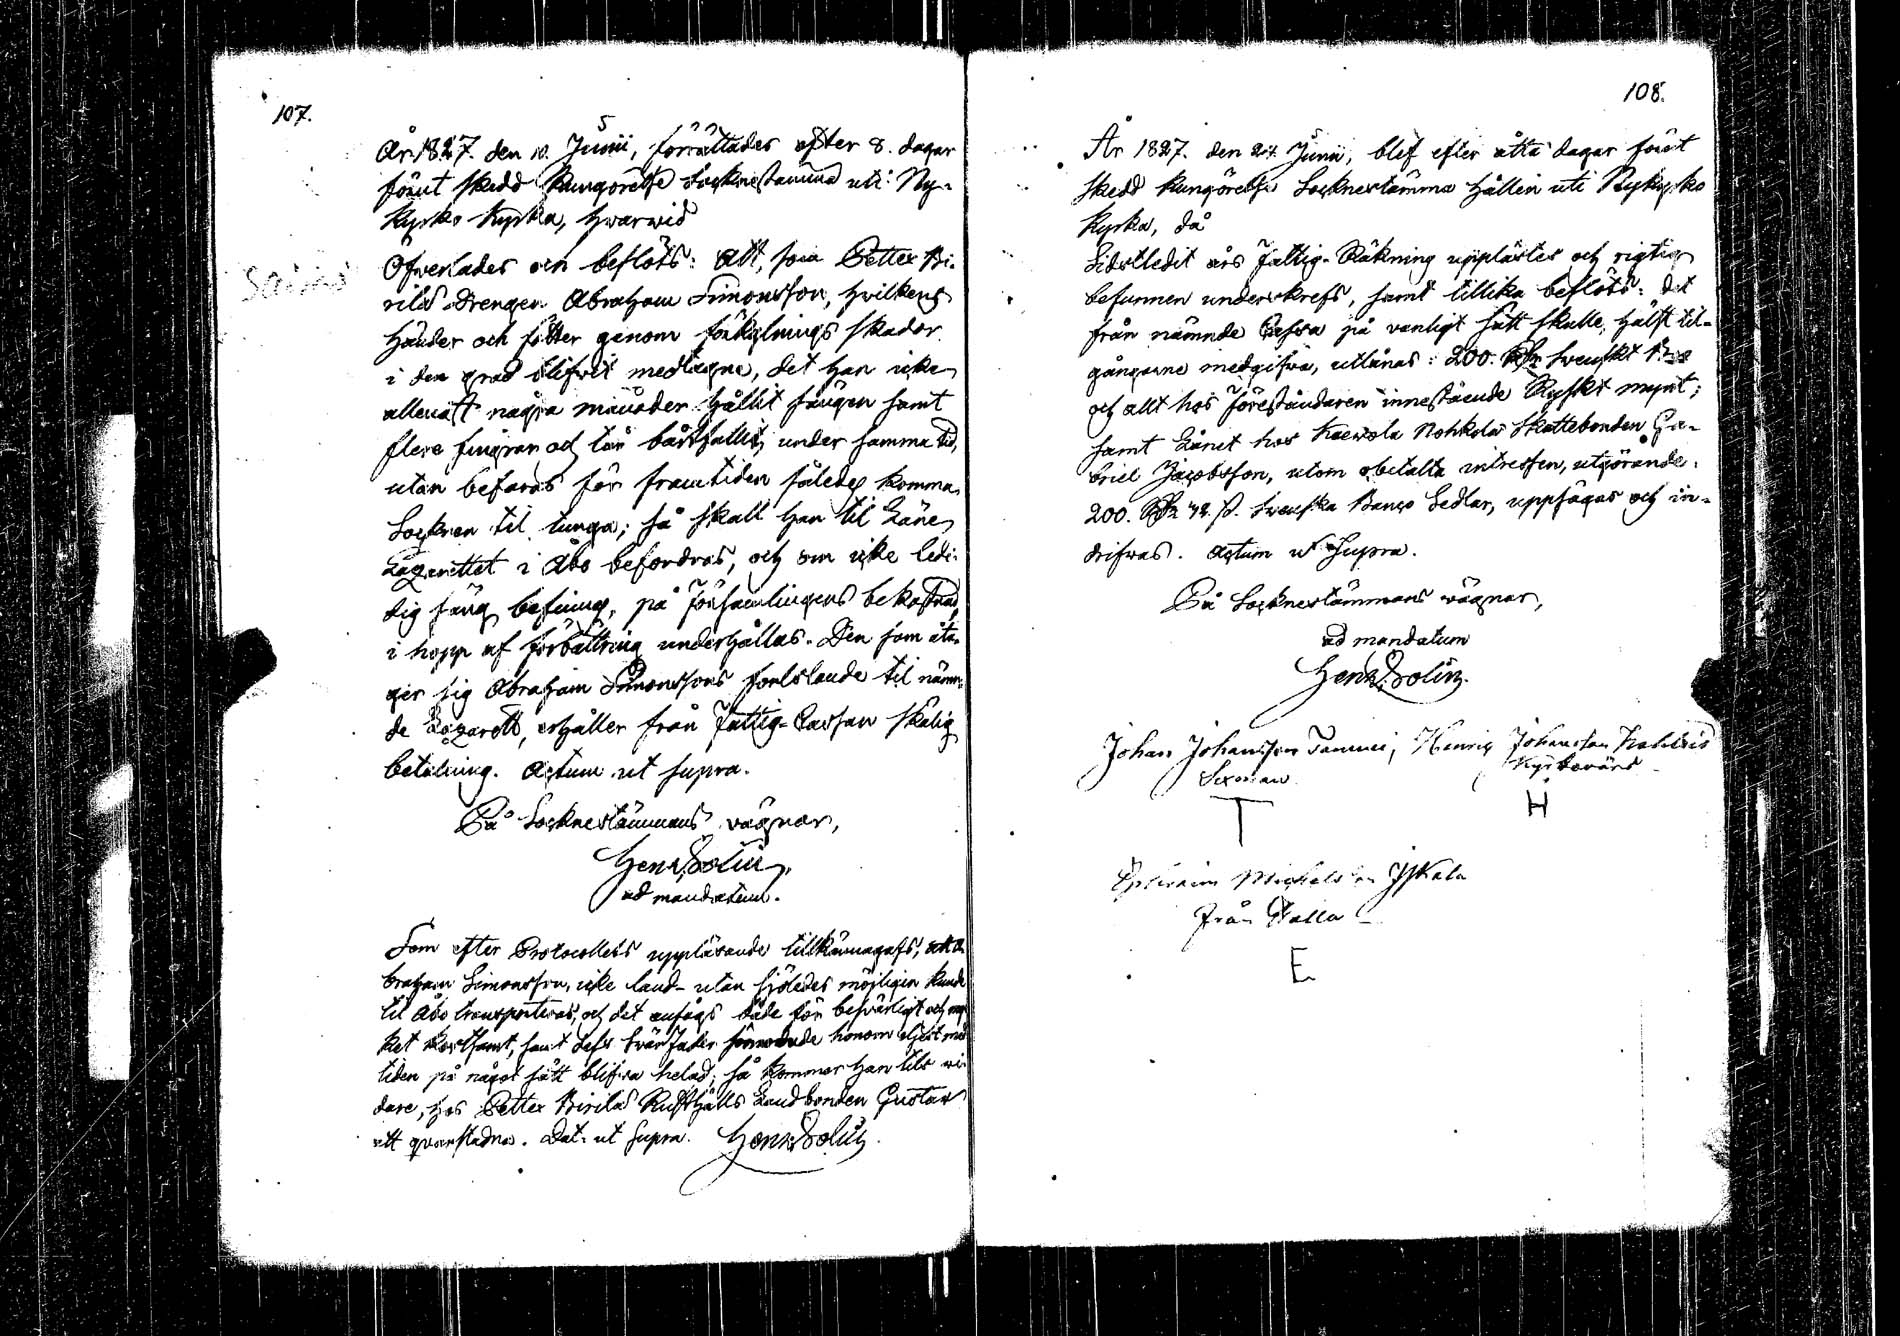 107.
År 1827. den 10. Junii, förrättades efter 8. dagar
förut skedd kungörelse Socknestämma uti Ny-
kyrko Kyrka, hwarwid
Öfwerlades och beslöts: att, som Petter Bi-
rilä Drengen Abraham Simonsson, hwilkens
händer och fötter genom förkylnings skador
i den grad blifwit medtagne, det han icke
allenast några månader hållit sängen samt
flere fingrar och tår bårtfallit, under samma tid,
utan befaras för framtiden således komma
Socknen til tunga; så skall han til Läne
Lazarettet i Åbo befordras, och om icke ledi-
dig säng befinnes, på Församlingens bekostnad,
i hopp af förbättring underhållas. Den som åta-
ger sig Abraham Simonssons fortskaffande til nämn-
de Lazarett, erhåller från Fattig-Cassan skälig
betalning. Actum ut supra.
På Socknestämmans vägnar,
Henr. Polin
ad mandatum.
Som efter Protocollets uppläsande tillkännagafs, att A-
braham Simonsson, icke land- utan sjöledes möjligen kunde
til Åbo transporteras, och det ansågs både för beswärligt och myc-
ket kostsamt, samt dess Swärfader förmodade honom eljest med
tiden på något sätt blifwa helad; så kommer han tils wi-
dare, hos Petter Birilä Rusthålls Landbonden Gustav
att qwarstadna. Dat. ut supra. Henr. Polin
108.
År 1827. den 24. Junii, blef efter åtta dagar förut
skedd kungörelse Socknestämma hållen uti Nykyrko
Kyrka, då
Sidstledit års Fattig-Räkning upplästes och rigtig
befunnen underskrefs, samt tillika beslöts: det
från nämnde Cassa på vanligt sätt skulle, hälst til-
gångarne medgifwa, utlånas: 200. Rdr Swenskt
och allt hos Föreståndaren innestående Ryskt mynt;
samt Lånet hos Kaewola Nohkola Skattebonden Ga-
briel Jacobsson, utom obetalta intressen, utgörande
200. Rdr 42 s. Swenska Banco Sedlar, uppsägas och in-
drifwas. Actum ut Supra.
På Socknestämmans vägnar,
ad mandatum
Henr. Polin.
Johan Johansson Tammi, Henric Johansson
Sexman Kyrkovärd
T H
Ephraim Michelsson
från
E